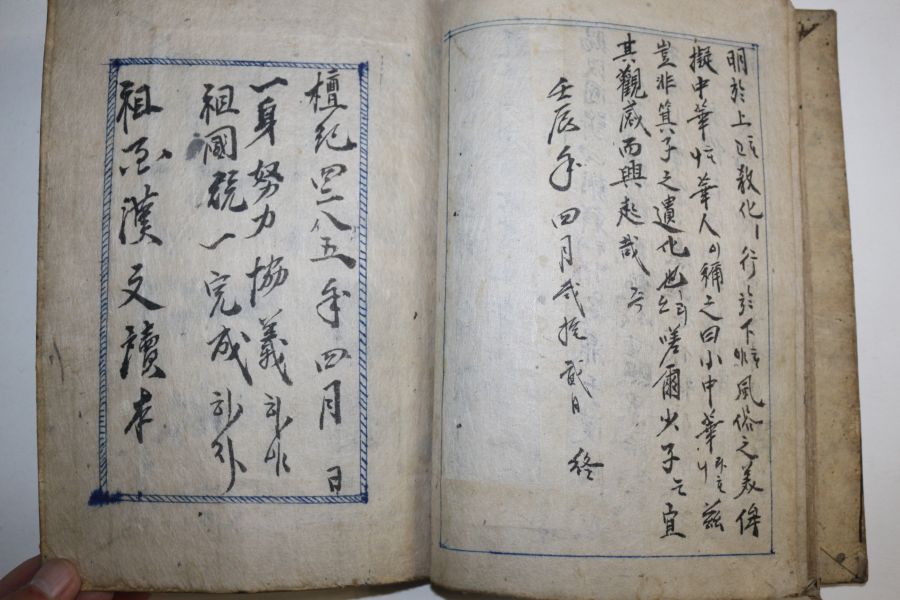 明於上 敎化ㅣ行於下 風俗之美侔
擬中華 華人이稱之曰小中華 玆
豈非箕子之遺化也 嗟爾少子 宜
其觀感而興起哉
壬辰年四月貳拾貳日 終
檀紀四二八五年四月 日
一身努力協義하야
祖國統一完成하자
祖 漢文讀本